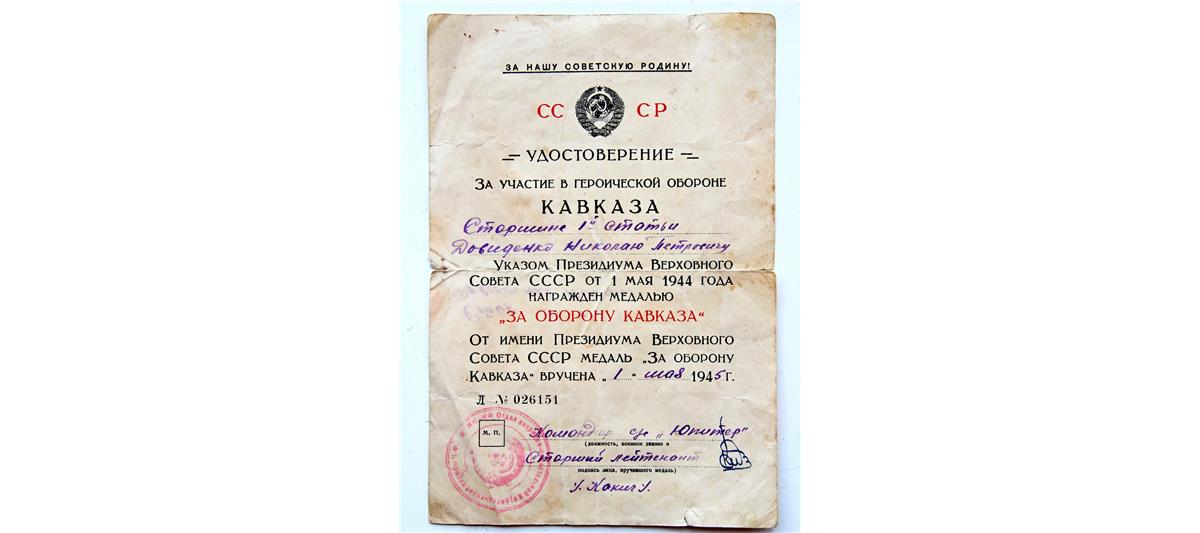 ЗА НАШУ СОВЕТСКУЮ РОДИНУ!
СС СР
УДОСТОВЕРЕНИЕ
ЗА УЧАСТИЕ В ГЕРОИЧЕСКОЙ ОБОРОНЕ
КАВКАЗА
Старшине 1й статьи
Довиденко Николаю Петровичу
УКАЗОМ ПРЕЗИДИУМА ВЕРХОВНОГО
СОВЕТА СССР ОТ 1 МАЯ 1944 ГОДА
НАГРАЖДЕН МЕДАЛЬЮ
„ЗА ОБОРОНУ КАВКАЗА“
ОТ ИМЕНИ ПРЕЗИДИУМА ВЕРХОВНОГО
СОВЕТА СССР МЕДАЛЬ „ЗА ОБОРОНУ
КАВКАЗА“ ВРУЧЕНА „1“ мая 1945 г.
Л № 026151
М. П.
Командир „Юпитер“
(должность, военное звание и
Старший лейтенант
подпись лица, вручившего медаль)